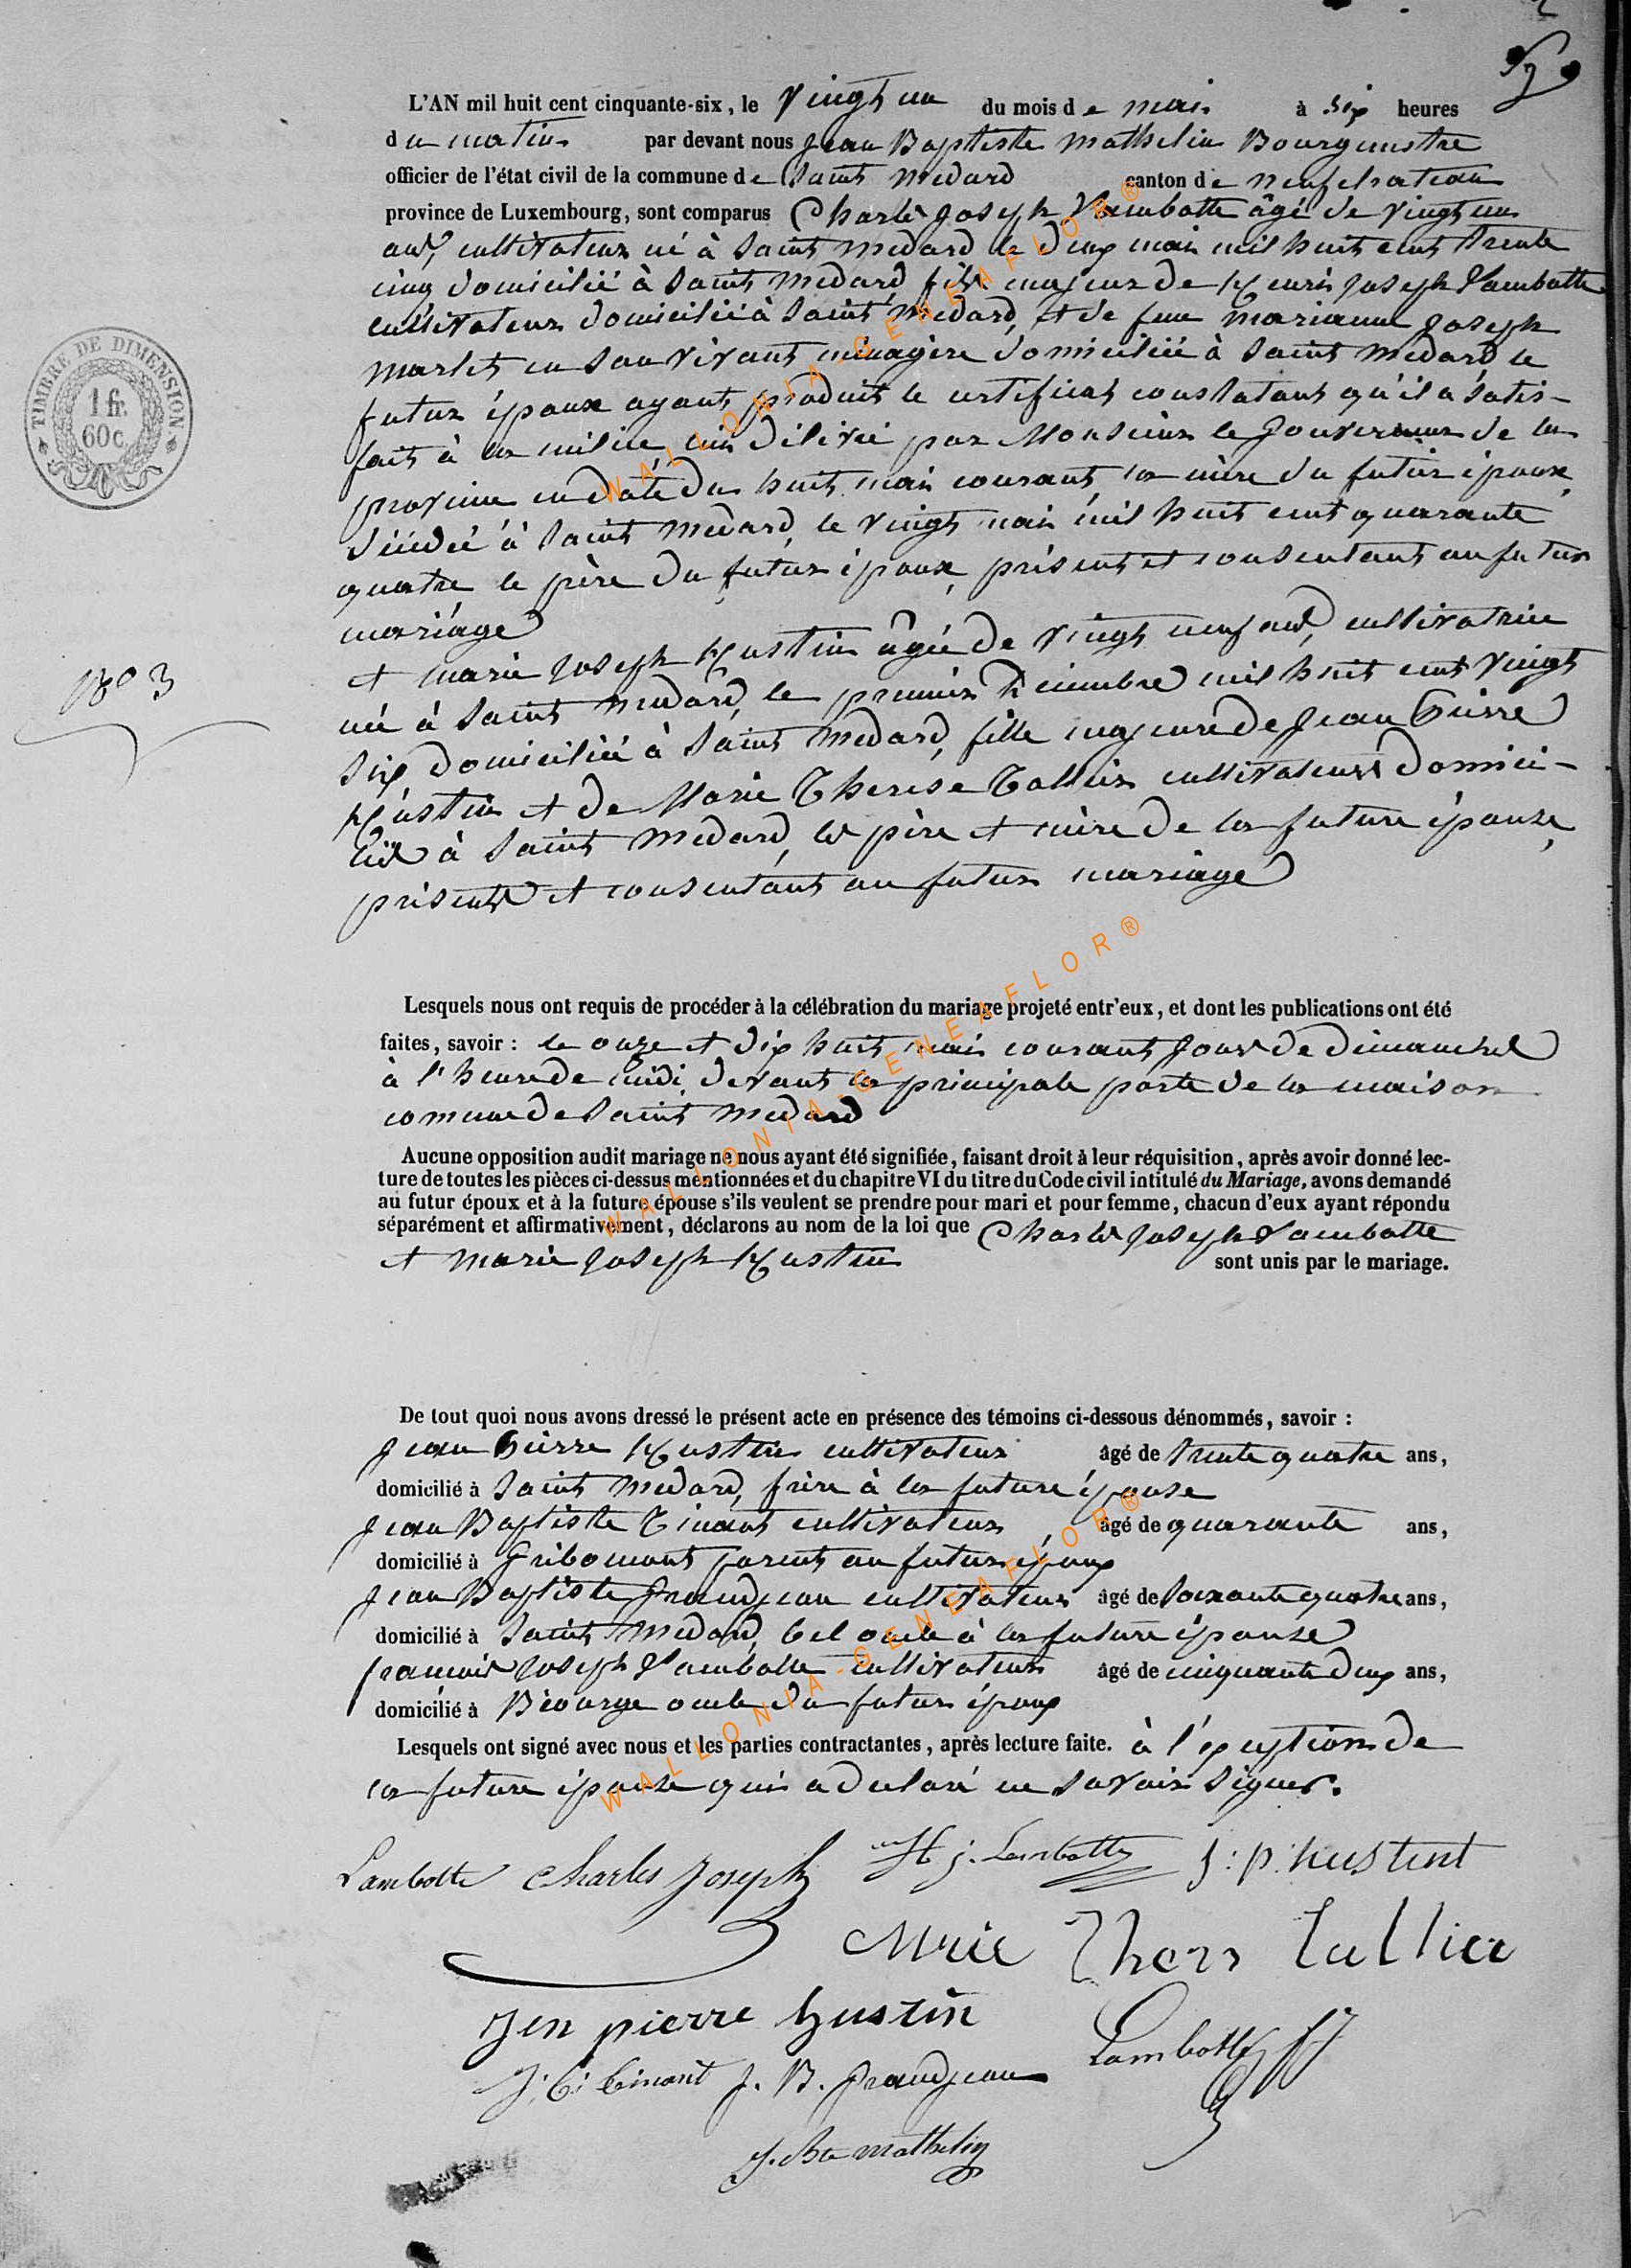 L'AN mil huit cent cinquante-six, le vingt un du mois de mai à six heures
du matin par devant nous Jean Baptiste Mathelin Bourgmestre
officier de l'état civil de la commune de Saint Medard canton de Neufchateau
province de Luxembourg, sont comparus Charles Joseph Lambotte âgé de vingt un
ans, cultivateur né à Saint Medard le deux mai mil huit cent trente
cinq domicilié à Saint Medard fils majeur de Henri Joseph Lambotte
cultivateur domicilié à Saint Medard, et de feue Marianne Joseph
Marlet en son vivant ménagère domiciliée à Saint Medard le
futur époux ayant produit le certificat constatant qu'il a satis-
fait à la milice, lui délivré par Monsieur le Gouverneur de la
province en date du huit mai courant, la mère du futur époux
décédée à Saint Medard, le vingt mai mil huit cent quarante
quatre le père du futur époux, présent et consentant au futur
mariage
et Marie Joseph Hustin âgée de vingt neuf ans, cultivatrice
née à Saint Medard, le premier décembre mil huit cent vingt
six domiciliée à Saint Medard, fille majeure de Jean Pierre
Hustin et de Marie Therese Tallier cultivateurs domici-
liés à Saint Medard, les père et mère de la future épouse,
présents et consentant au futur mariage
N° 3
TIMBRE DE DIMENSION
1 fr.
60 c.
Lesquels nous ont requis de procéder à la célébration du mariage projeté entr'eux, et dont les publications ont été
faites, savoir : le onze et dix huit mai courant jour de dimanche
à l'heure de midi, devant la principale porte de la maison
commune de Saint Medard
Aucune opposition audit mariage ne nous ayant été signifiée, faisant droit à leur réquisition, après avoir donné lec-
ture de toutes les pièces ci-dessus mentionnées et du chapitre VI du titre du Code civil intitulé du Mariage, avons demandé
au futur époux et à la future épouse s'ils veulent se prendre pour mari et pour femme, chacun d'eux ayant répondu
séparément et affirmativement, déclarons au nom de la loi que Charles Joseph Lambotte
et Marie Joseph Hustin sont unis par le mariage.
De tout quoi nous avons dressé le présent acte en présence des témoins ci-dessous dénommés, savoir :
Jean Pierre Hustin cultivateur âgé de trente quatre ans,
domicilié à Saint Medard, frère à la future épouse
Jean Baptiste Tinant cultivateur, âgé de quarante ans,
domicilié à Gribomont parent au futur époux
Jean Baptiste Grandjean cultivateur âgé de soixante quatre ans,
domicilié à Saint Medard, bel oncle à la future épouse
François Joseph Lambotte cultivateur âgé de cinquante deux ans,
domicilié à Biourge oncle du futur époux
Lesquels ont signé avec nous et les parties contractantes, après lecture faite. à l'exception de
la future épouse qui a déclaré ne savoir signer.
Lambotte Charles Joseph H j. Lambotte j : p. hustent
Mrie Thers tallier
Jen pierre hustin Lambotte FJ
J. B. tinant J. B. Grandjean
J. Bte Mathelin
WALLONIA-GENEAFLOR®
WALLONIA-GENEAFLOR®
WALLONIA-GENEAFLOR®